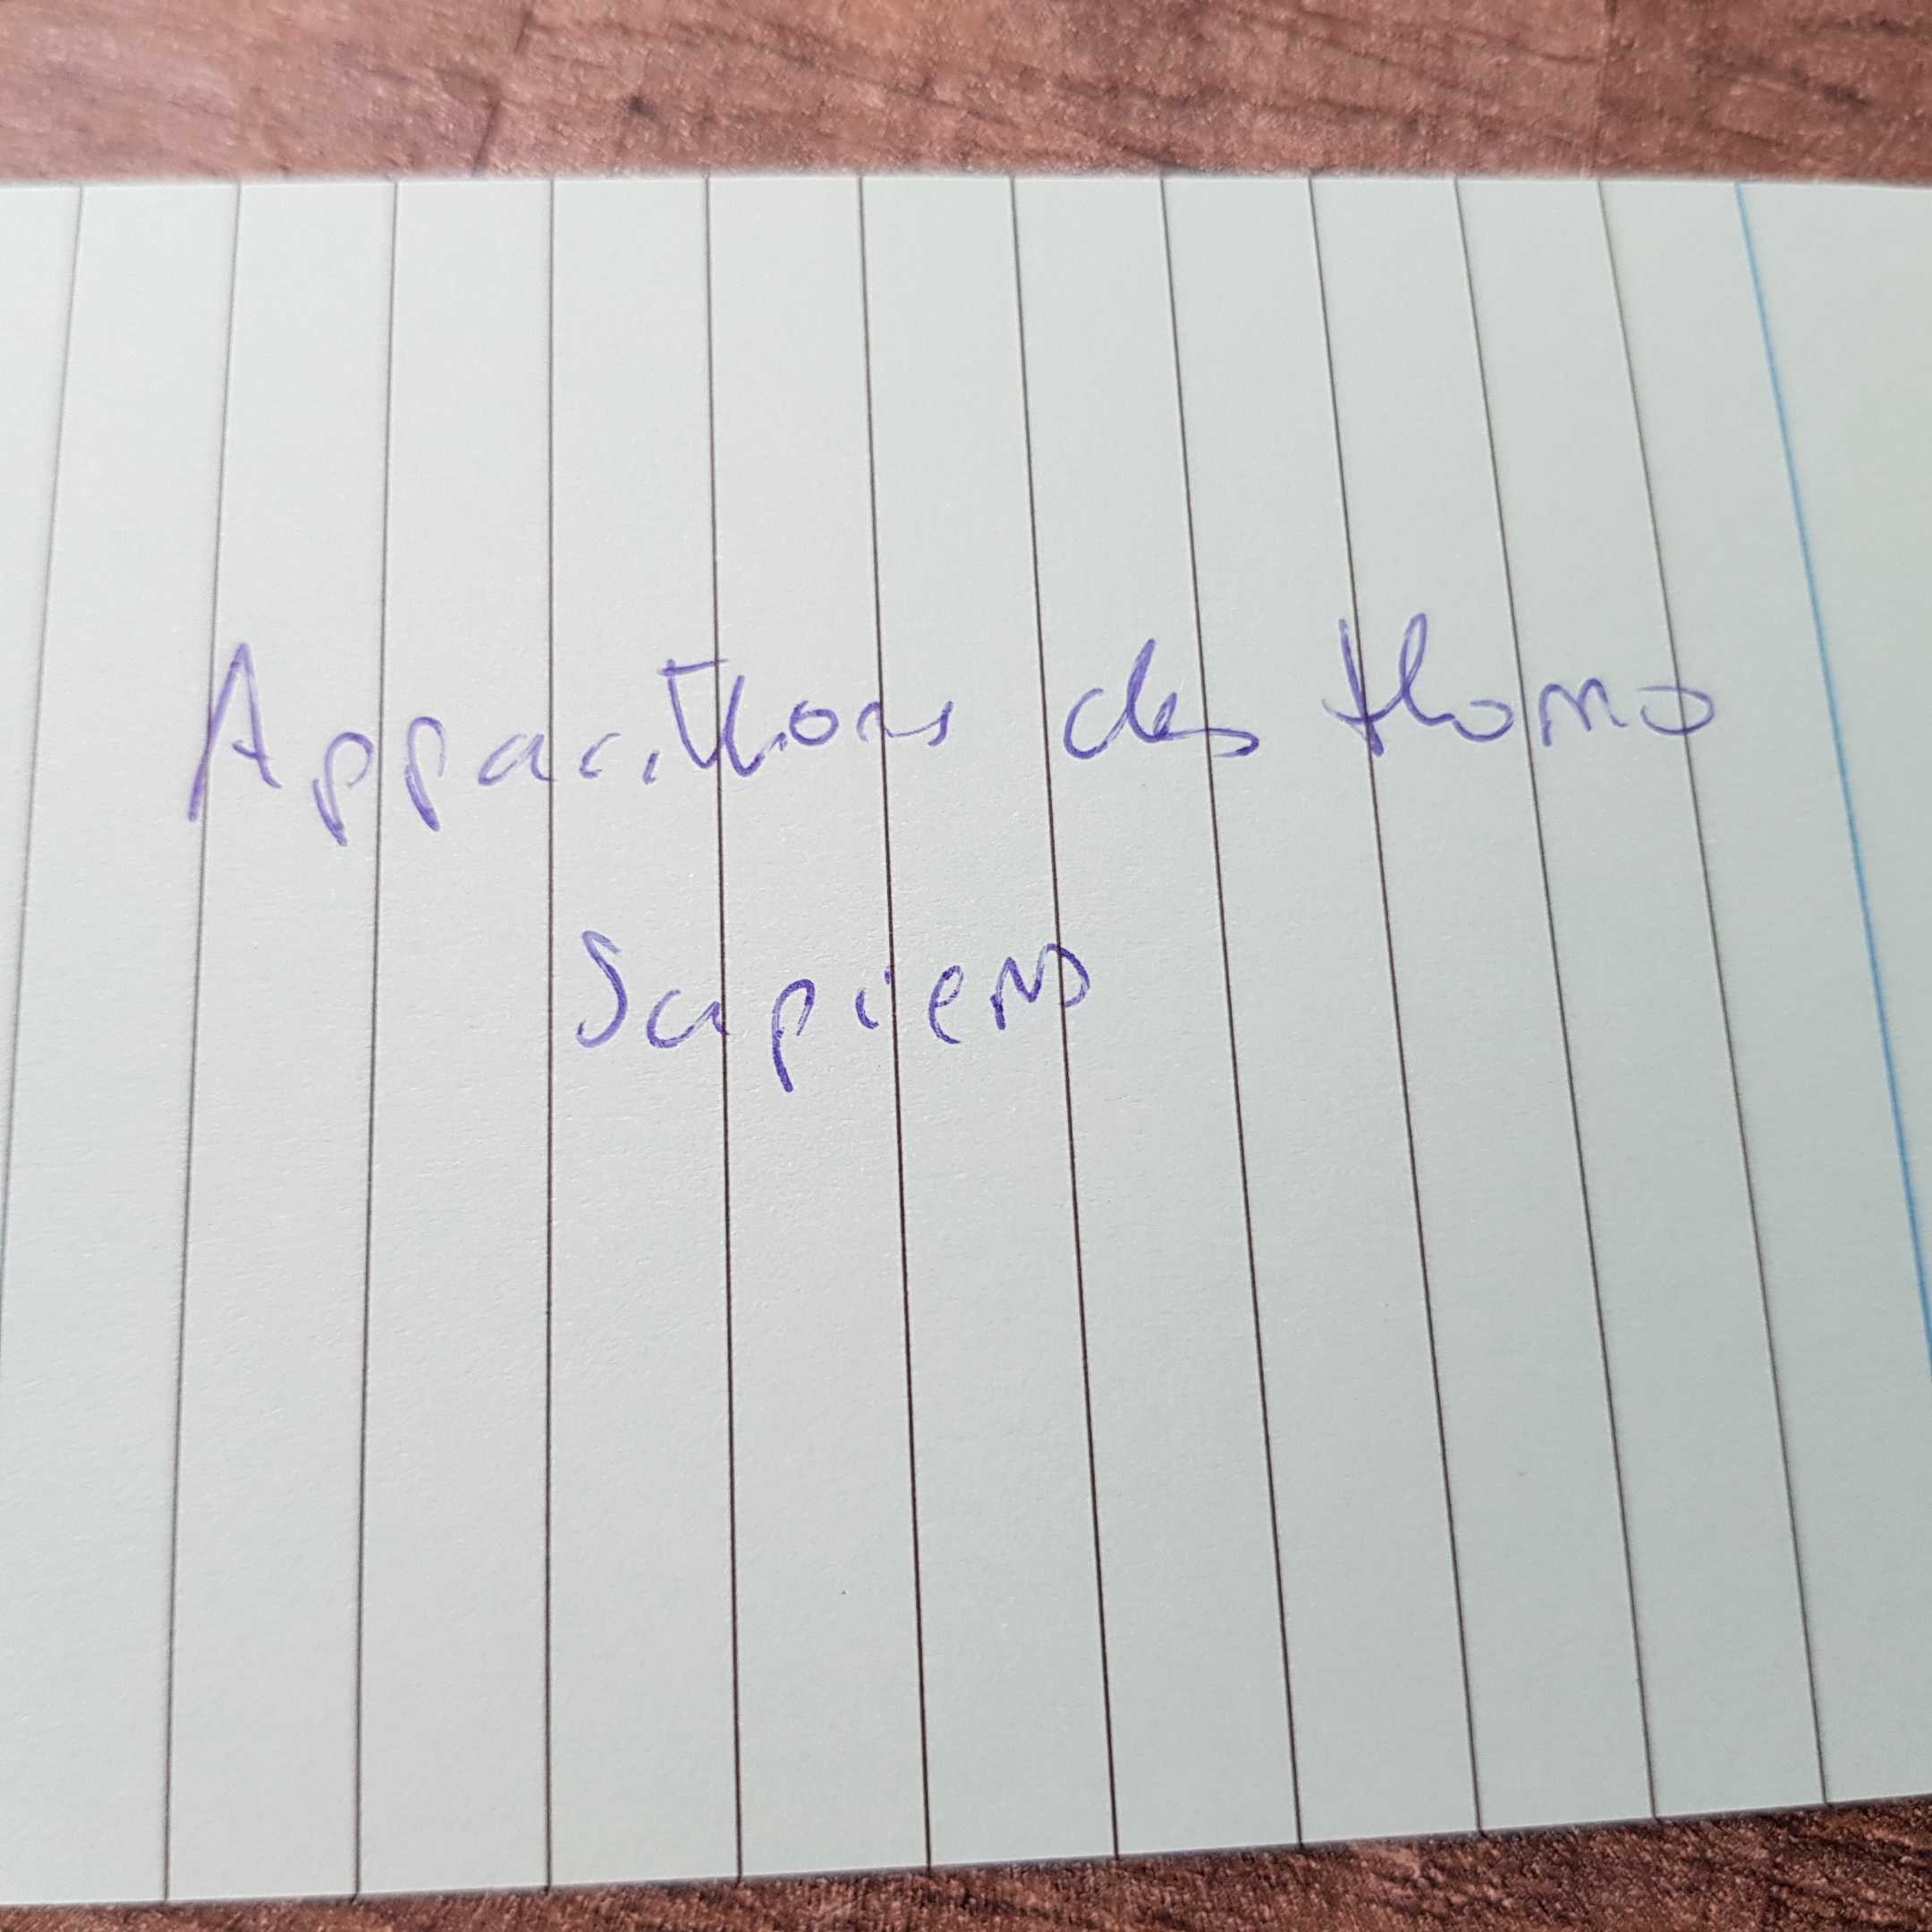 Apparitions des Homo
Sapiens